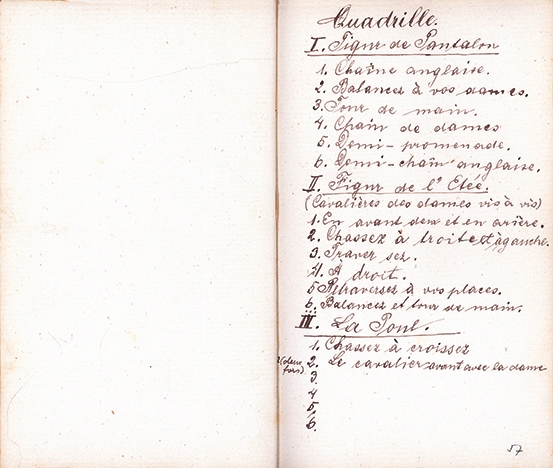 Quadrille.
I. Figur de Pantalon
1. Chaîne anglaise.
2. Balancez à vos dames.
3. Tour de main.
4. Chain de dames
5. Demi-promenade.
6. Demi-chaîn anglaise.
II. Figur de l' Etée.
(Cavalières des dames vis à vis)
1. En avant deux et en arière.
2. Chassez à troite et à gauche.
3. Traver sez.
4. A droit.
5 Retraversez à vos places.
6. Balancez et tour de main.
III. La Poul.
1. Chassez à croissez
2 (deux fois) 2. Le cavalier avant avec la dame
3.
4
5.
6.
57